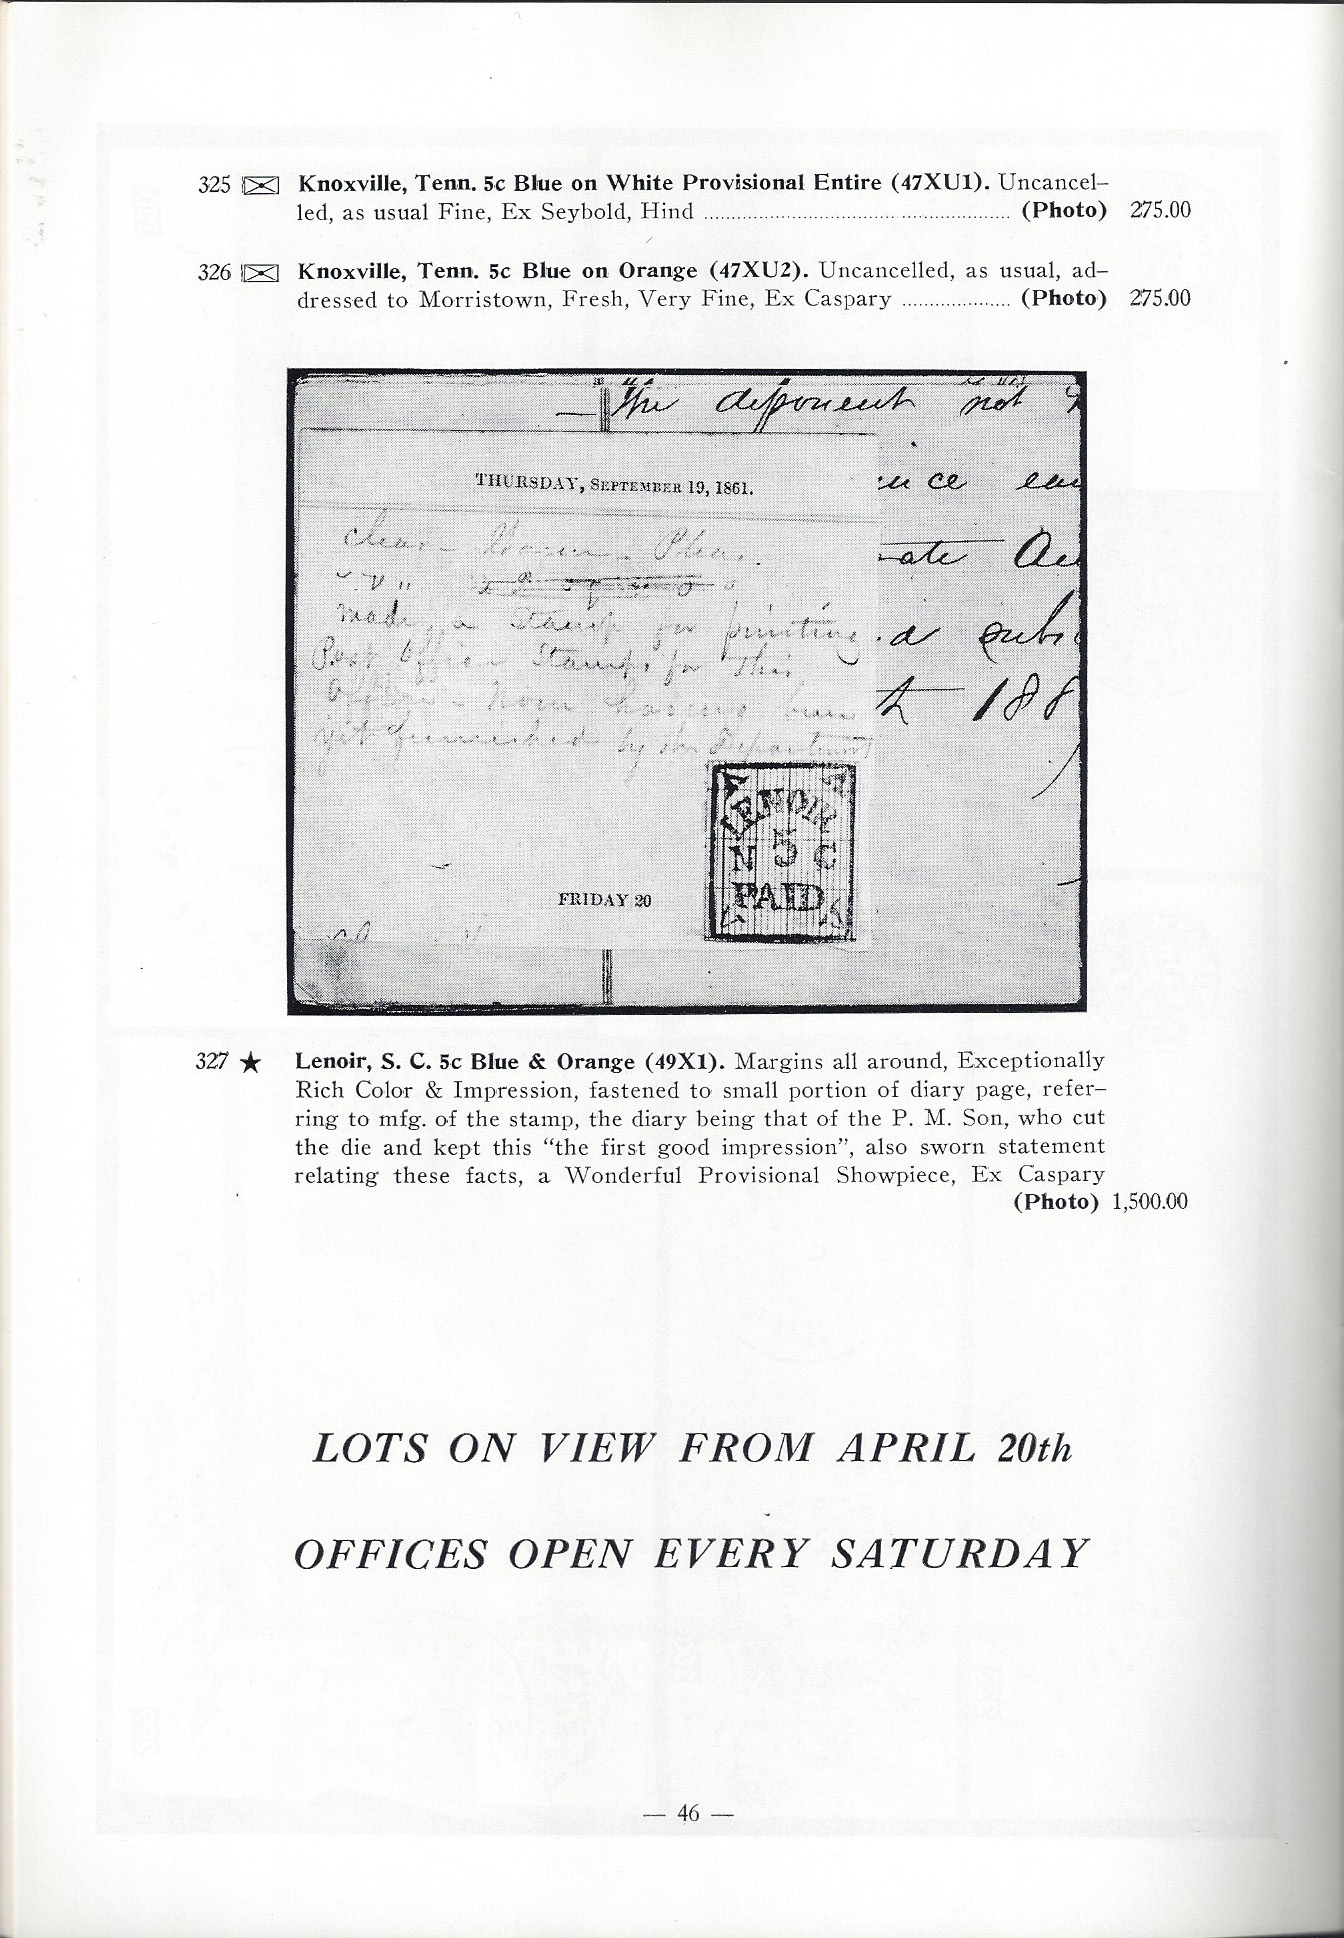 325 Knoxville, Tenn. 5c Blue on White Provisional Entire (47XU1). Uncancel-
led, as usual Fine, Ex Seybold, Hind (Photo) 275.00
326 Knoxville, Tenn. 5c Blue on Orange (47XU2). Uncancelled, as usual, ad-
dressed to Morristown, Fresh, Very Fine, Ex Caspary (Photo) 275.00
The deponent not
THURSDAY, SEPTEMBER 19, 1861.
made a Stamp for printing
Post Office Stamps for this
Office - None having been
yet furnished by the Department
188
LENOIR
N 5 C
PAID
FRIDAY 20
327 ★ Lenoir, S. C. 5c Blue & Orange (49X1). Margins all around, Exceptionally
Rich Color & Impression, fastened to small portion of diary page, refer-
ring to mfg. of the stamp, the diary being that of the P. M. Son, who cut
the die and kept this “the first good impression”, also sworn statement
relating these facts, a Wonderful Provisional Showpiece, Ex Caspary
(Photo) 1,500.00
LOTS ON VIEW FROM APRIL 20th
OFFICES OPEN EVERY SATURDAY
— 46 —